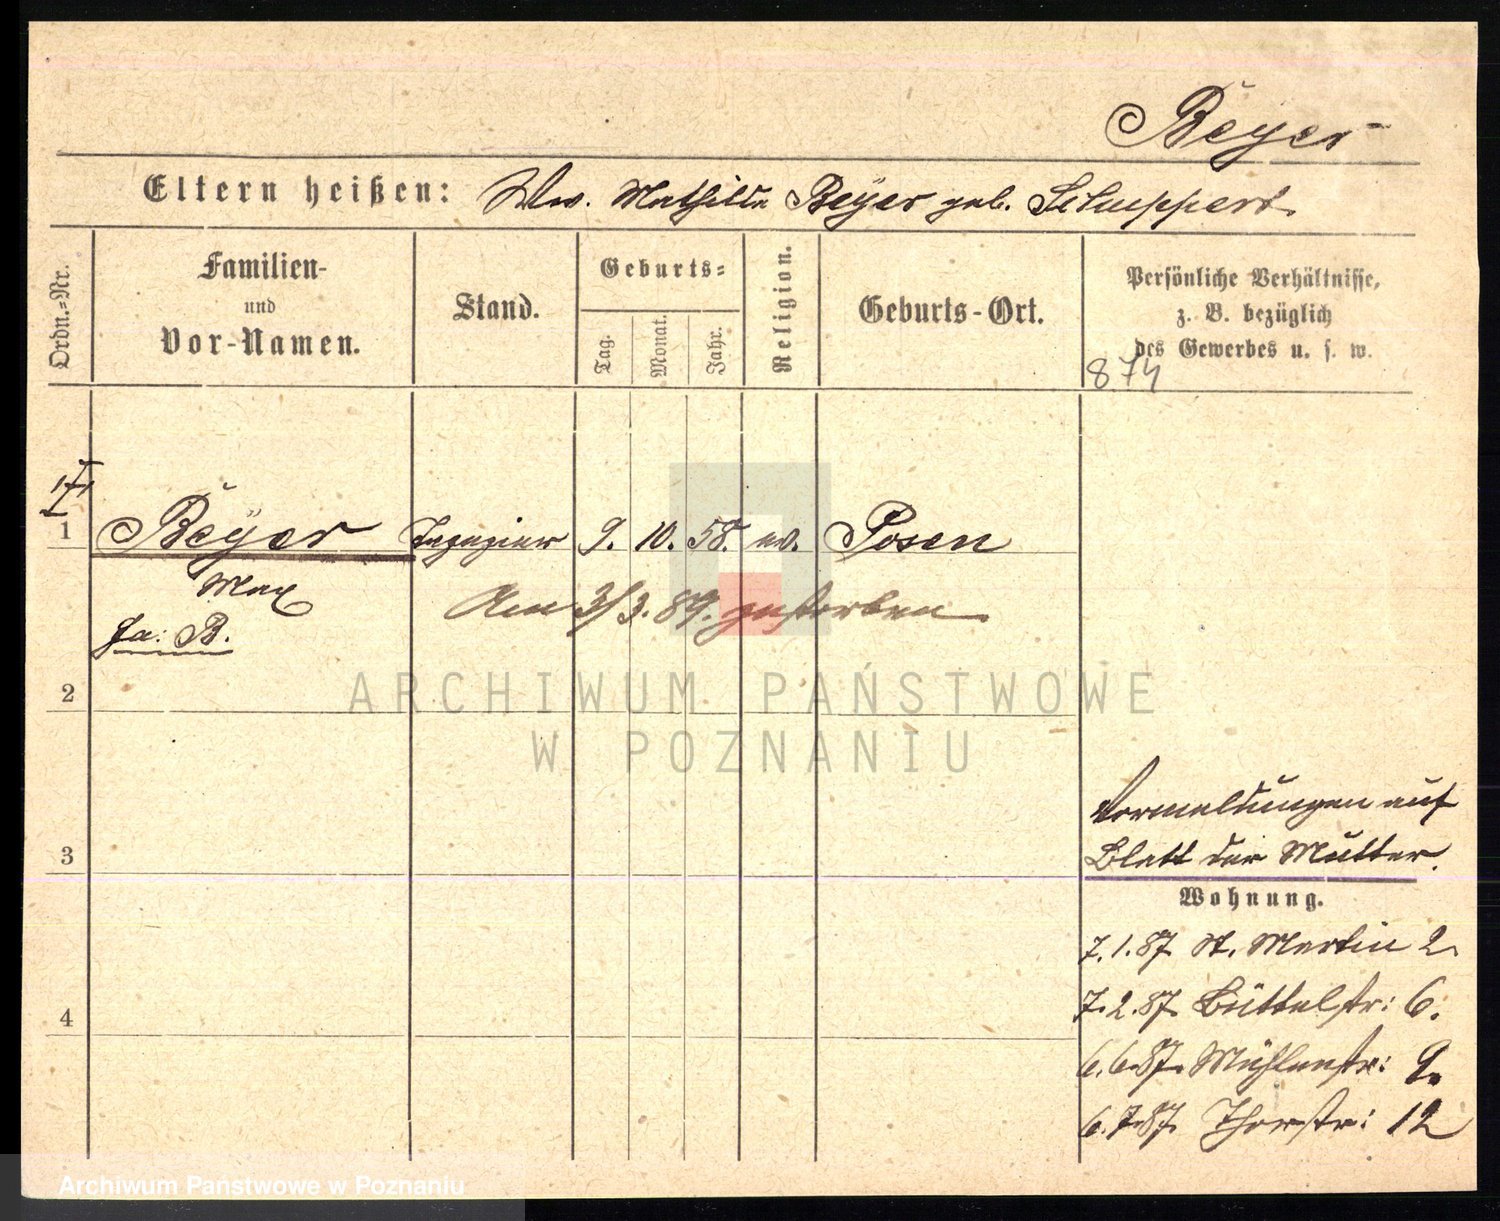 Beyer
Eltern heißen: Ww. Mathilde Beÿer geb. Schuppert.
Ordn.-Nr.
Familien-
und
Vor-Namen.
Stand.
Geburts-
Tag.
Monat.
Jahr.
Religion.
Geburts-Ort.
Persönliche Verhältnisse,
z. B. bezüglich
des Gewerbes u. s. w.
874
1 Beÿer 9. 10. 58. ev. Posen
Max
Am 3/3. 89. gestorben
Fa: B.
2
3
4
Vormeldungen auf
Blatt der Mutter.
Wohnung.
7.1.87 St. Martin 2.
7.2.87 Büttelstr: 6.
6.6.87. Mühlenstr: 9.
6.7.87. Thorstr: 12
ARCHIWUM PAŃSTWOWE
W POZNANIU
Archiwum Państwowe w Poznaniu